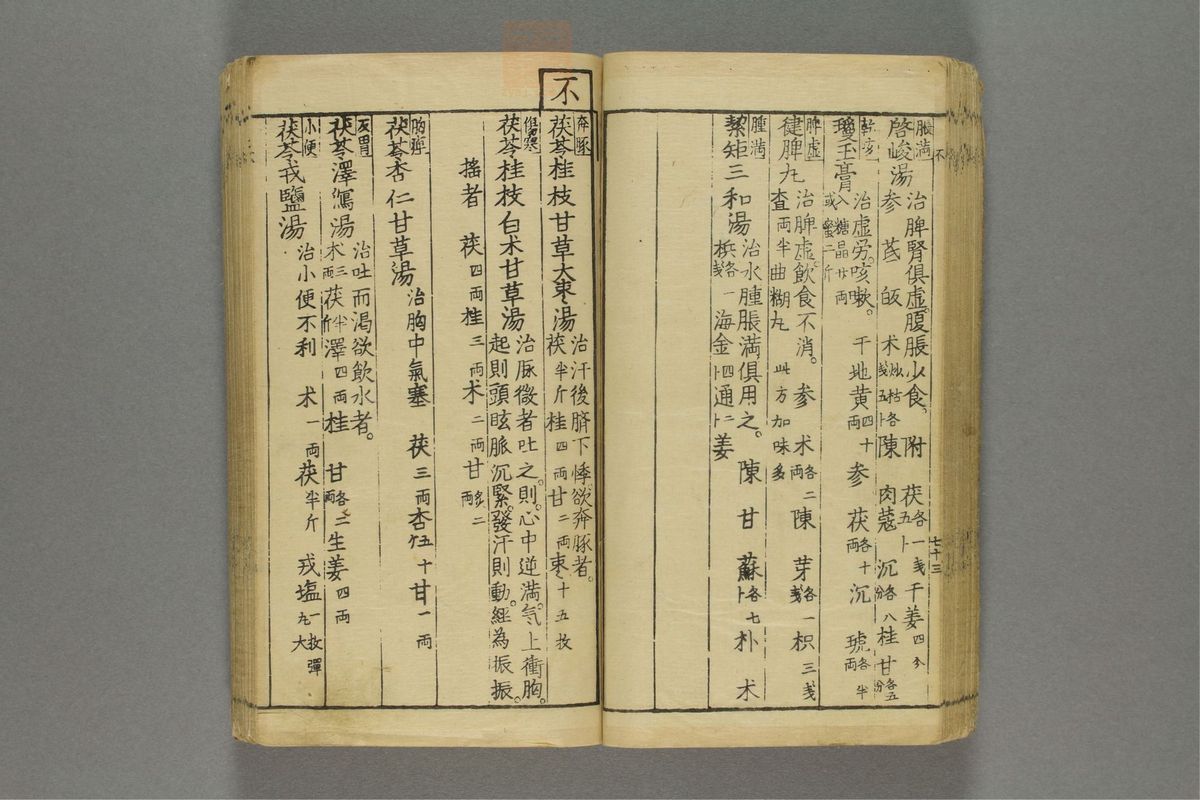 不
七十三
脹満
啓峻湯
治脾腎俱虚。腹脹少食。附 茯各一戋 干姜四分
参 芪 皈 术 陳 肉蔻 沉各八分 桂 甘各五分
乾咳
瓊玉膏
治虚労。咳嗽。 干地黄四十両 参 茯各十両 沉 琥各半両
入糖晶廿両
或蜜二斤
脾虚
健脾丸
治脾虚飲食不消。 参 术各二両 陳 芽各一戋 枳三戋
査両半 曲糊丸 此方加味多
腫満
絜矩三和湯
治水腫脹満俱用之。 陳 甘 蘇各七卜 朴 术
梹各一戋 海金四卜 通二卜 姜
不
奔豚
茯苓桂枝甘草大枣湯
治汗後臍下悸。欲奔豚者。
茯半斤 桂四両 甘二両 枣十五枚
傷寒
茯苓桂枝白术甘草湯
治脈微者吐之。則。心中逆満。気上衝胸。
起則頭眩脈沉緊。發汗則動。經為振振。
搖者 茯四両 桂三両 术二両 甘炙二両
胸痺
茯苓杏仁甘草湯
治胸中氣塞 茯三両 杏仁五十 甘一両
反胃
茯苓澤瀉湯
治吐而渇欲飲水者。
术三両 茯半斤 澤四両 桂 甘各二両 生姜四両
小便
茯苓戎鹽湯
治小便不利 术一両 茯半斤 戎塩一枚彈丸大